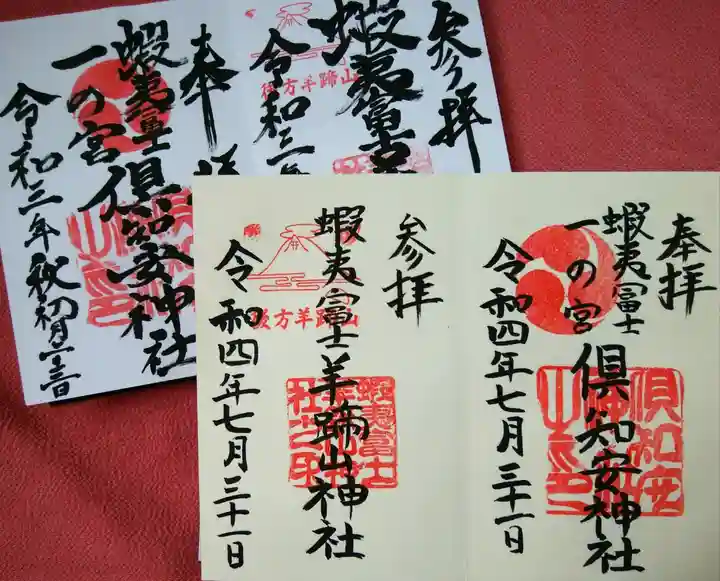 奉拝
蝦夷富士
一の宮
倶知安神社
令和四年七月三十一日
参拝
蝦夷富士羊蹄山神社
後方羊蹄山
令和四年七月三十一日
参拝
蝦夷富士
後方羊蹄山
令和三年
奉拝
蝦夷富士
一の宮
倶知安神社
令和三年秋初月